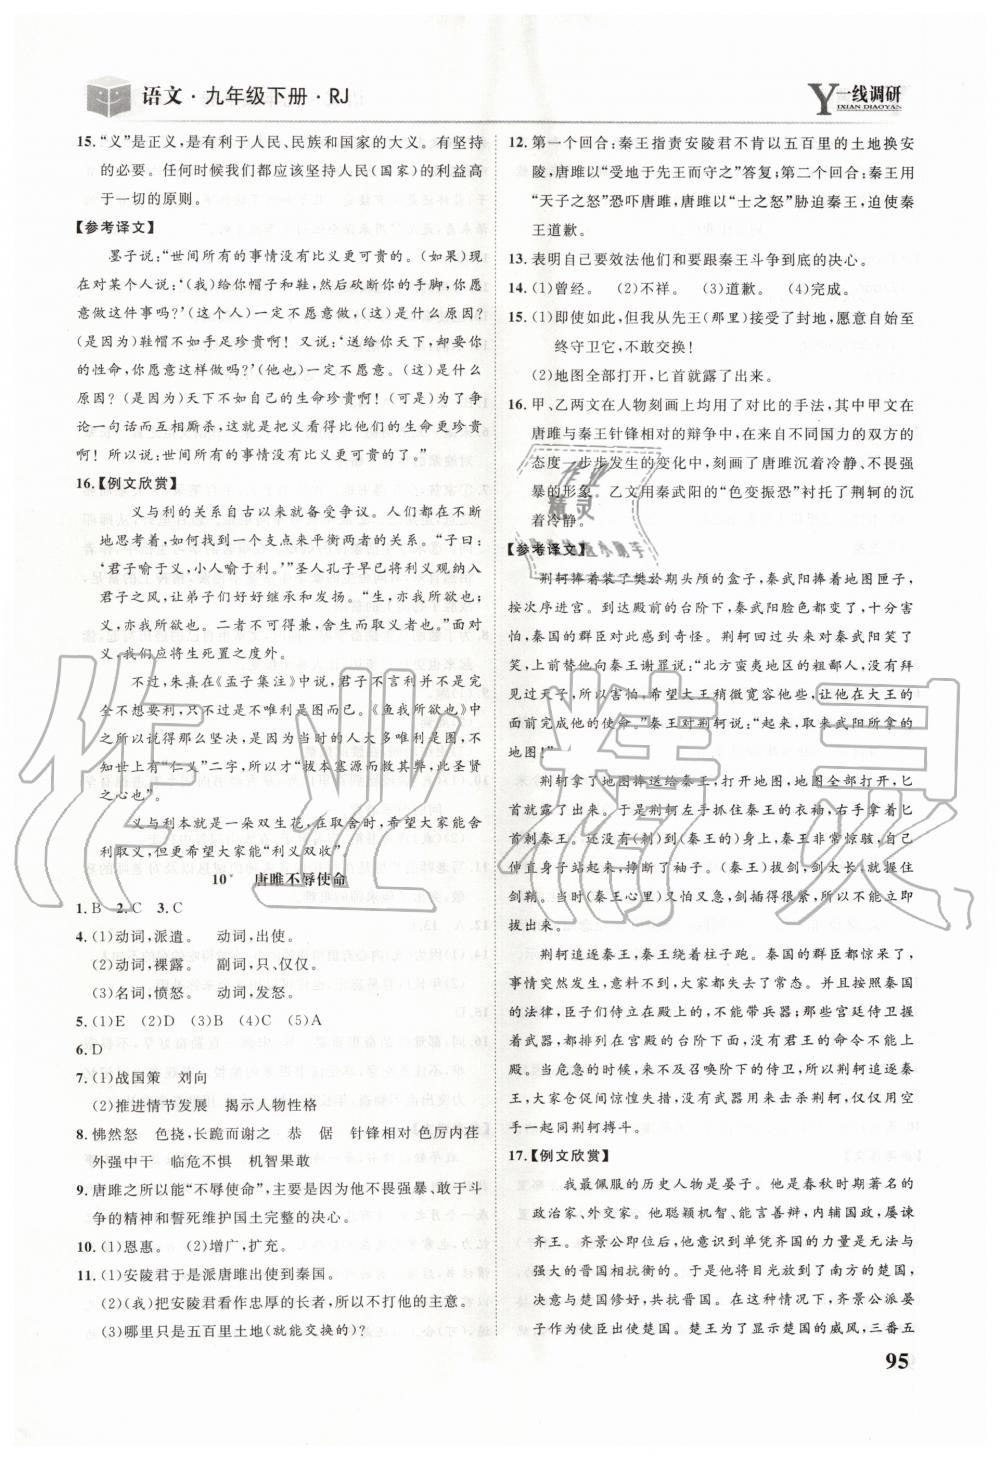 语文·九年级下册·RJ
一线调研
YIXIAN DIAOYAN
15.“义”是正义,是有利于人民、民族和国家的大义。有坚持
的必要。任何时候我们都应该坚持人民(国家)的利益高
于一切的原则。
【参考译文】
墨子说:“世间所有的事情没有比义更可贵的。(如果)现
在对某个人说:‘(我)给你帽子和鞋,然后砍断你的手脚,你愿
意做这件事吗?’(这个人)一定不愿意做,(这)是什么原因?
(因为)鞋帽不如手足珍贵啊!又说:‘送给你天下,却要你
的性命,你愿意这样做吗?’(他也)一定不愿意。(这)是什么
原因?(那是因为)天下不如自己的生命珍贵啊!(可是)为了争
论一句话而互相厮杀,这就是把义看得比他们的生命更珍贵
啊!所以说:世间所有的事情没有比义更可贵的了。”
16.【例文欣赏】
义与利的关系自古以来就备受争议。人们都在不断
地思考着,如何找到一个支点来平衡两者的关系。“子曰:
‘君子喻于义,小人喻于利。’”圣人孔子早已经将义利纳入
君子之风,以求天下君子们好好经营。“生,亦我所欲也;
义,亦我所欲也。二者不可得兼,舍生而取义者也。”面对
义,我们应将生死置之度外。
不过,朱熹在《孟子集注》中说,君子不言利并不是完
全不想要利,只不过不唯利是图而已。《鱼我所欲也》中
之所以说得那么坚决,是因为当时的人大多唯利是图,不
知世上有“仁义”二字,所以才“拔本塞源而救其弊,此圣贤
之心也”。
义与利本就是一录双生花,在取舍时,希望大家能舍
利取义,但更希望大家能“利义双收”。
10* 唐雎不辱使命
1.B 2.C 3.C
4.(1)动词,派遣。 动词,出使。
(2)动词,裸露。 副词,只、仅仅。
(3)名词,愤怒。 动词,发怒。
5.(1)E (2)D (3)B (4)C (5)A
6.D
7.(1)战国策 刘向
(2)推进情节发展 揭示人物性格
8.怫然怒 色挠,长跪而谢之 恭 倨 针锋相对 色厉内荏
外强中干 临危不惧 机智果敢
9.唐雎之所以能“不辱使命”,主要是因为他不畏强暴、敢于斗
争的精神和誓死维护国土完整的决心。
10.(1)恩惠。 (2)增广,扩充。
11.(1)安陵君于是派唐雎出使到秦国。
(2)(我)把安陵君看作忠厚的长者,所以不打他的主意。
(3)哪里只是五百里土地(就能交换的)?
12.第一个回合:秦王指责安陵君不肯以五百里的土地换安
陵,唐雎以“受地于先王而守之”答复;第二个回合:秦王用
“天子之怒”恐吓唐雎,唐雎以“士之怒”胁迫秦王,迫使秦
王道歉。
13.表明自己要效法他们和要跟秦王斗争到底的决心。
14.(1)曾经。 (2)不祥。 (3)道歉。 (4)完成。
15.(1)即使如此,但我从先王(那里)接受了封地,愿意自始至
终守卫它,不敢交换!
(2)地图全部打开,匕首就露了出来。
16.甲、乙两文在人物刻画上均用了对比的手法,其中甲文在
唐雎与秦王针锋相对的辩争中,在来自不同国力的双方的
态度一步步发生的变化中,刻画了唐雎沉着冷静、不畏强
暴的形象。乙文用秦武阳的“色变振恐”衬托了荆轲的沉
着冷静。
【参考译文】
荆轲捧着装了樊於期头颅的盒子,秦武阳捧着地图匣子,
按次序进宫。到达殿前的台阶下,秦武阳脸色都变了,十分害
怕,秦国的群臣对此感到奇怪。荆轲回过头来对秦武阳笑了
笑,上前替他向秦王谢罪说:“北方蛮夷地区的粗鄙人,没有拜
见过天子,所以害怕,希望大王稍微宽容他些,让他在大王的
面前完成他的使命。”秦王对荆轲说:“起来,取来武阳所拿的
地图!”
荆轲拿了地图捧送给秦王,打开地图,地图全部打开,匕
首就露了出来。于是荆轲左手抓住秦王的衣袖,右手拿着匕
首刺秦王。还没有(刺)到(秦王的)身上,秦王非常惊骇,自己
伸直身子站起来,挣断了袖子。(秦王)拔剑,剑太长,(就握住)
剑鞘。(秦王心里)又怕又急,剑插得很紧,所以不能立即
拔出来。
荆轲追逐秦王,秦王绕着柱子跑。秦国的群臣都惊呆了,
事情突然发生,没意料到,大家都失去了常态。并且按照秦国
的法律,臣子们侍立在殿上的,不能带兵器;那些宫廷侍卫握
着武器,都排列在宫殿的台阶下面,没有君王的命令不能上
殿。当危急的时候,来不及召唤阶下的侍卫,所以荆轲追逐秦
王,大家仓促间惊惶失措,没有武器用来击杀荆轲,仅仅用空
手一起同荆轲搏斗。
17.【例文欣赏】
我最佩服的历史人物是晏子。他是春秋时期著名的
政治家、外交家。他聪颖机智、能言善辩,内辅国政,屡谏
齐王。齐景公时期,他意识到单凭齐国的力量是无法与
强大的晋国相抗衡的。于是他将目光放到了南方的楚国,
决意与楚国修好,共抗晋国。在这种情势下,齐景公派晏
子作为使臣出使楚国。楚王为了显示楚国的威风,三番五
95
作业精灵